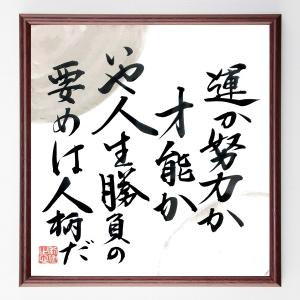 運か努力か
才能か
いや人生勝負の
要めは人柄だ